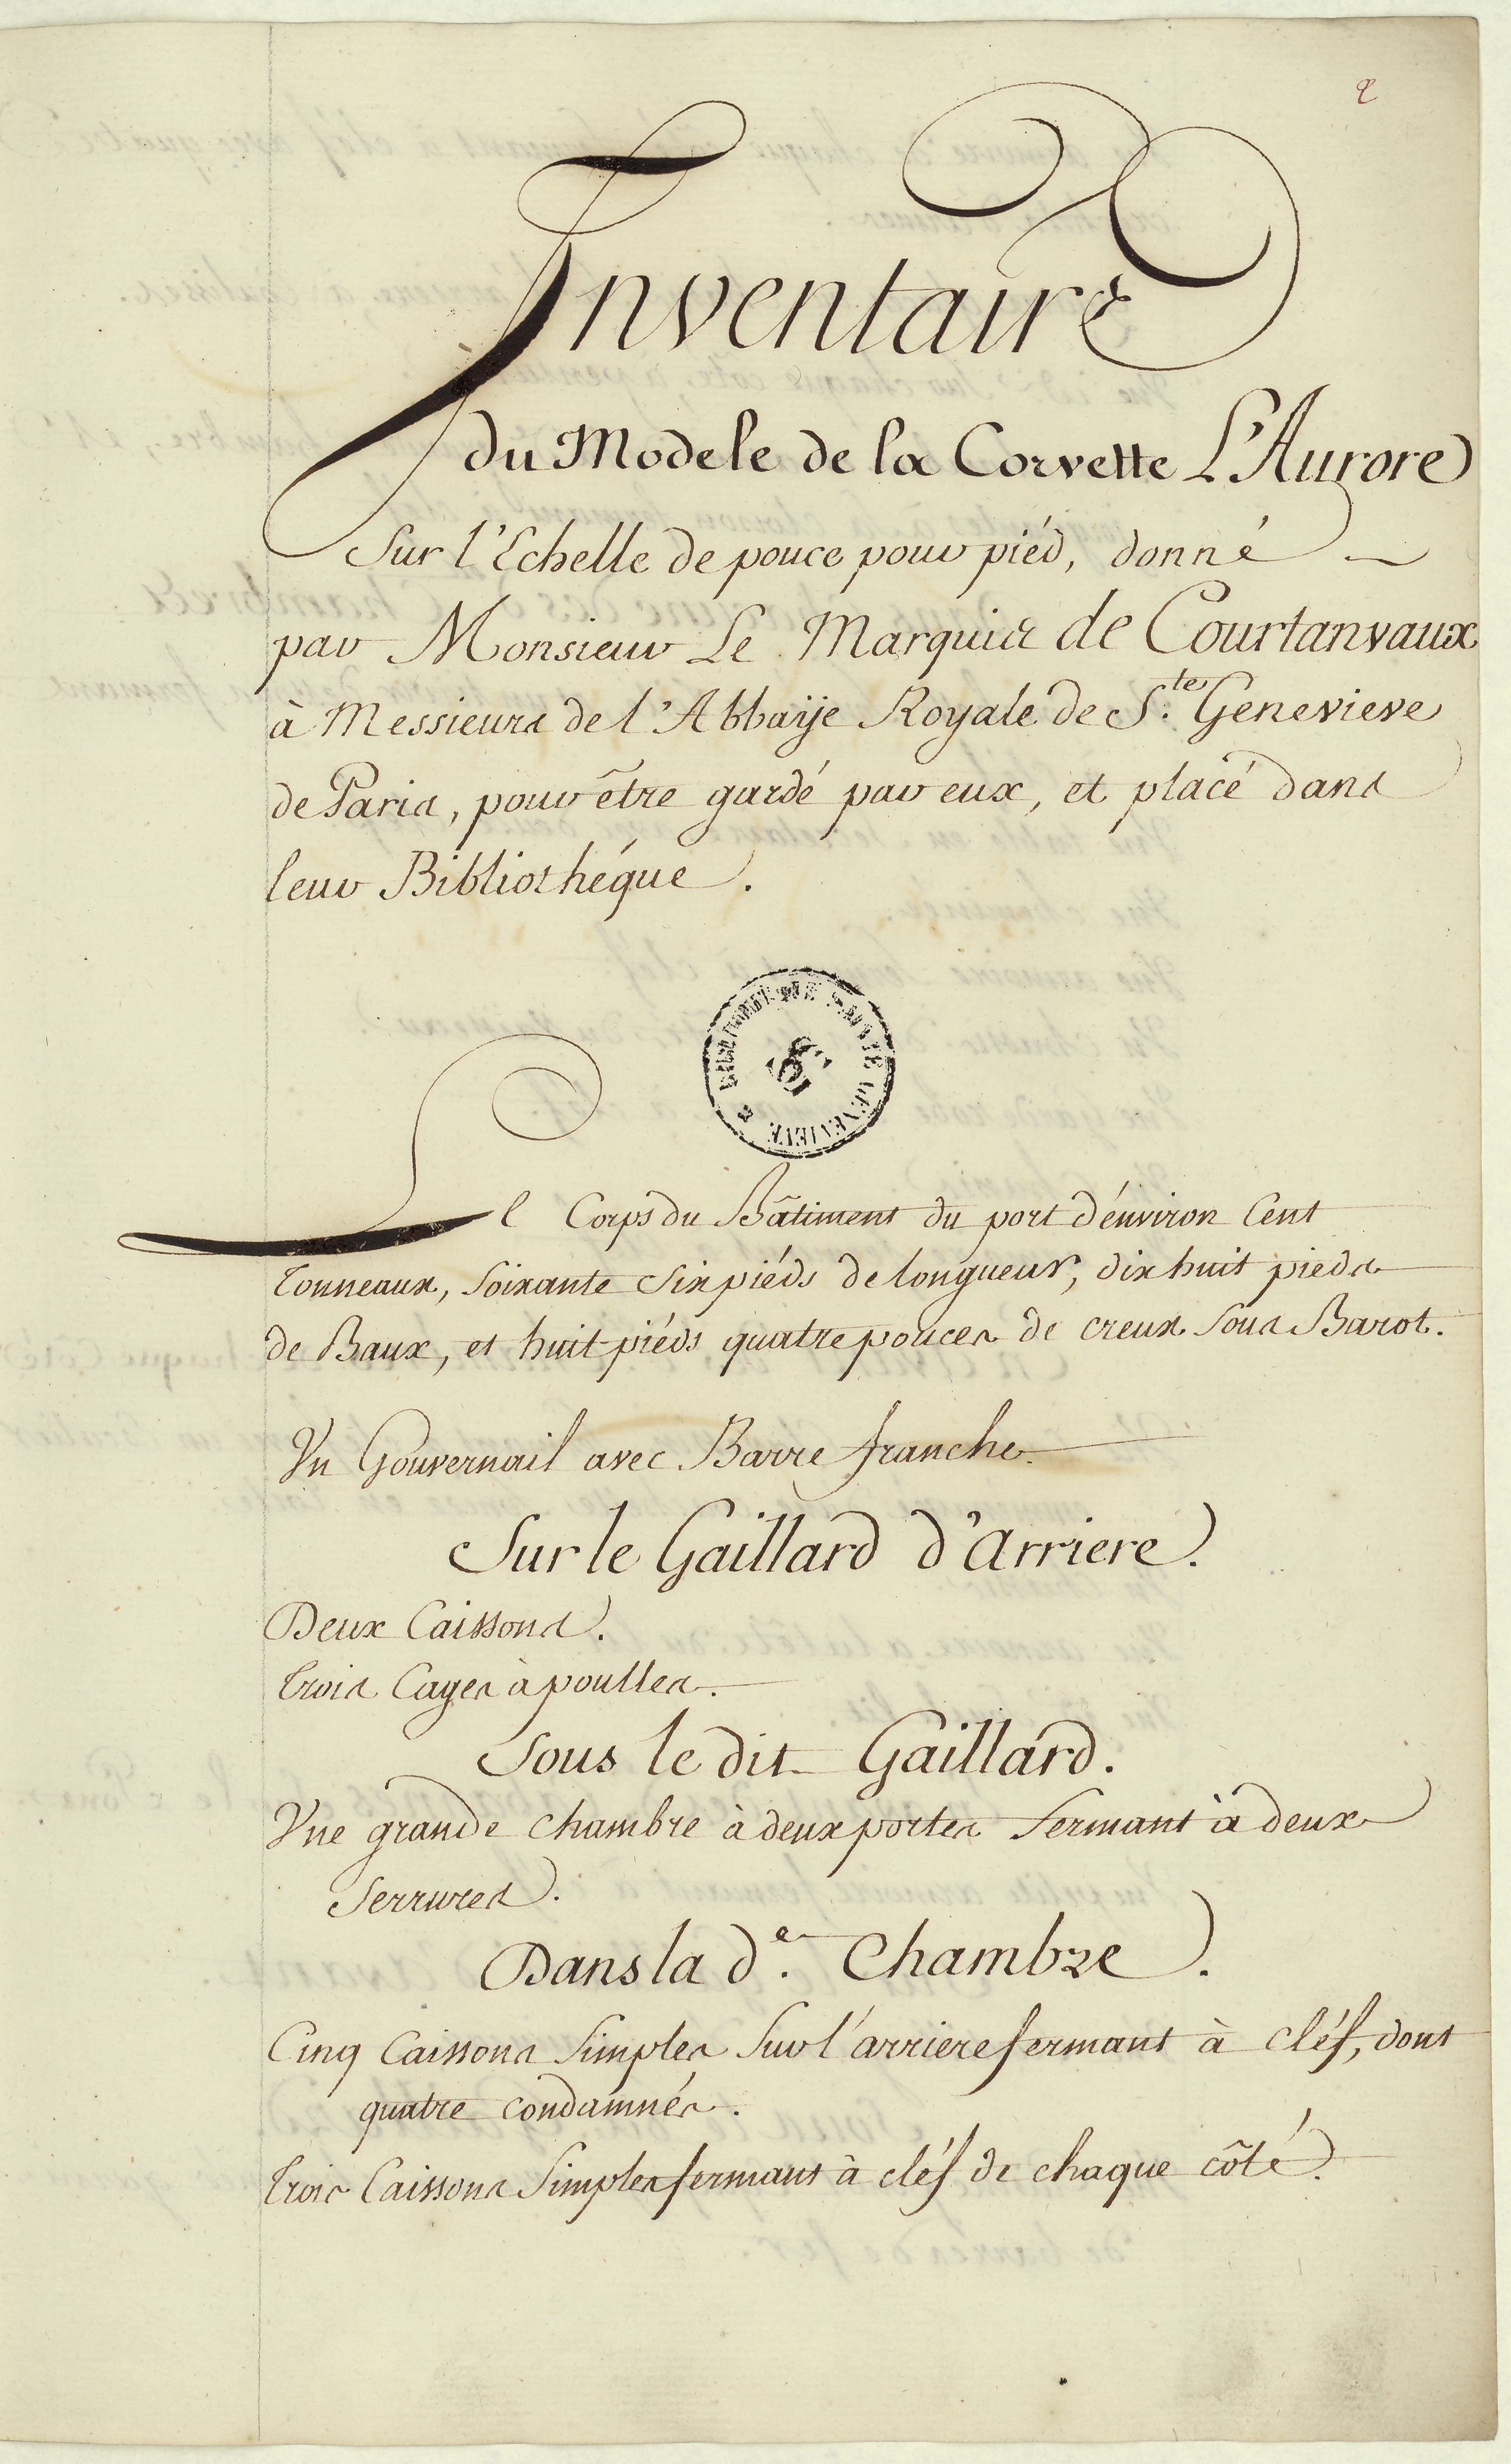 2
Inventaire
du Modele de la Corvette L'Aurore
Sur l'Echelle de pouce pour piéd, donné
par Monsieur Le Marquis de Courtanvaux
à Messieurs de l'Abbaÿe Royale de S.te Genevieve
de Paris, pour être gardé par eux, et placé dans
leur Bibliothéque.
BIBLIOTHEQUE SAINTE GENEVIEVE
SG
Le Corps du Bâtiment du port d'énviron Cent
Tonneaux, Soixante Six piéds de longueur, dix huit pieds
de Baux, et huit piéds quatre pouces de creux Sous Barot.
Un Gouvernail avec Barre franche.
Sur le Gaillard d'Arriere.
Deux Caissons.
Trois Cages à poulles.
Sous le dit Gaillard.
Une grande Chambre à deux portes fermant à deux
Serrures.
Dans la d.e Chambre.
Cinq Caissons Simples Sur l'arriere fermant à cléf, dont
quatre condamnés.
Trois Caissons Simples fermant à cléf de chaque côté.